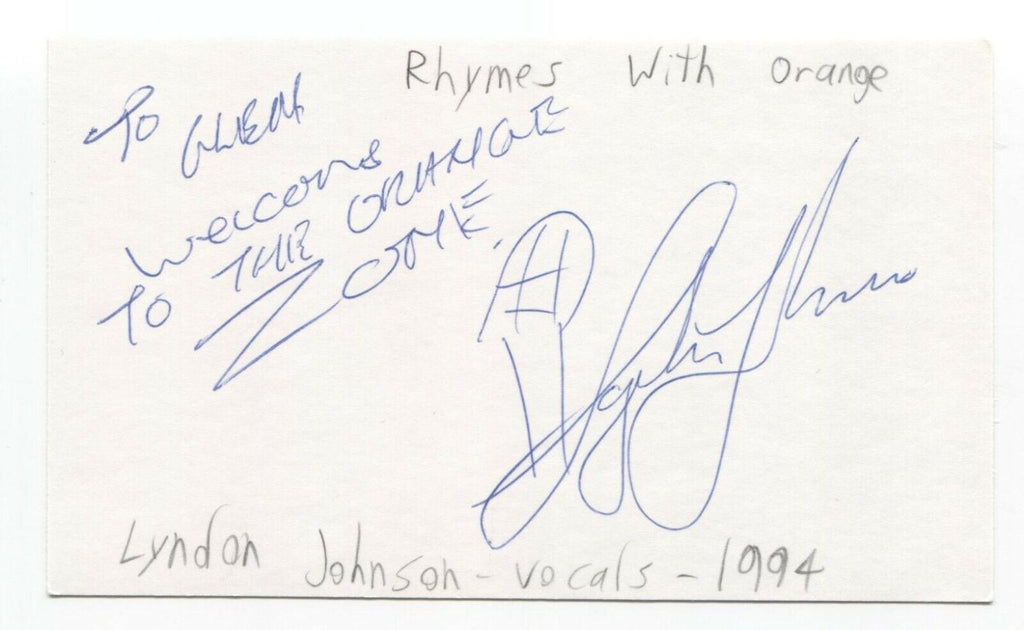 Rhymes With Orange
To GLEN
Welcome
TO THE ORANGE
ZONE
Lyndon Johnson - vocals - 1994